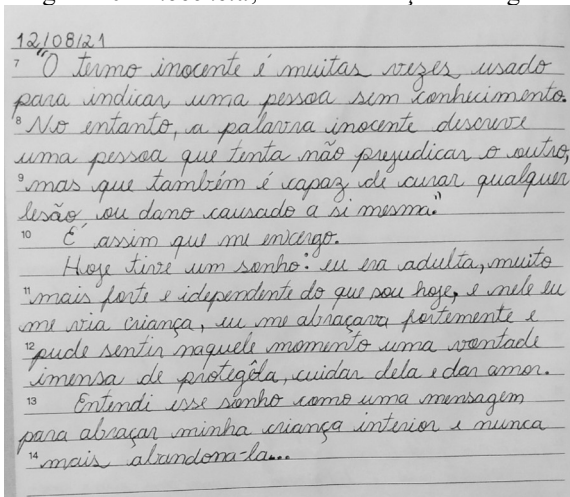 12/08/21
7 "O termo inocente é muitas vezes usado
para indicar uma pessoa sem conhecimento.
8 No entanto, a palavra inocente descreve
uma pessoa que tenta não prejudicar o outro,
9 mas que também é capaz de curar qualquer
lesão ou dano causado a si mesma."
10 É assim que me enxergo.
Hoje tive um sonho: eu era adulta, muito
11 mais forte e idependente do que sou hoje, e nele eu
me via criança, eu me abraçava fortemente e
12 pude sentir naquele momento uma vontade
imensa de protegêla, cuidar dela e dar amor.
13 Entendi esse sonho como uma mensagem
para abraçar minha criança interior e nunca
14 mais abandona-la...